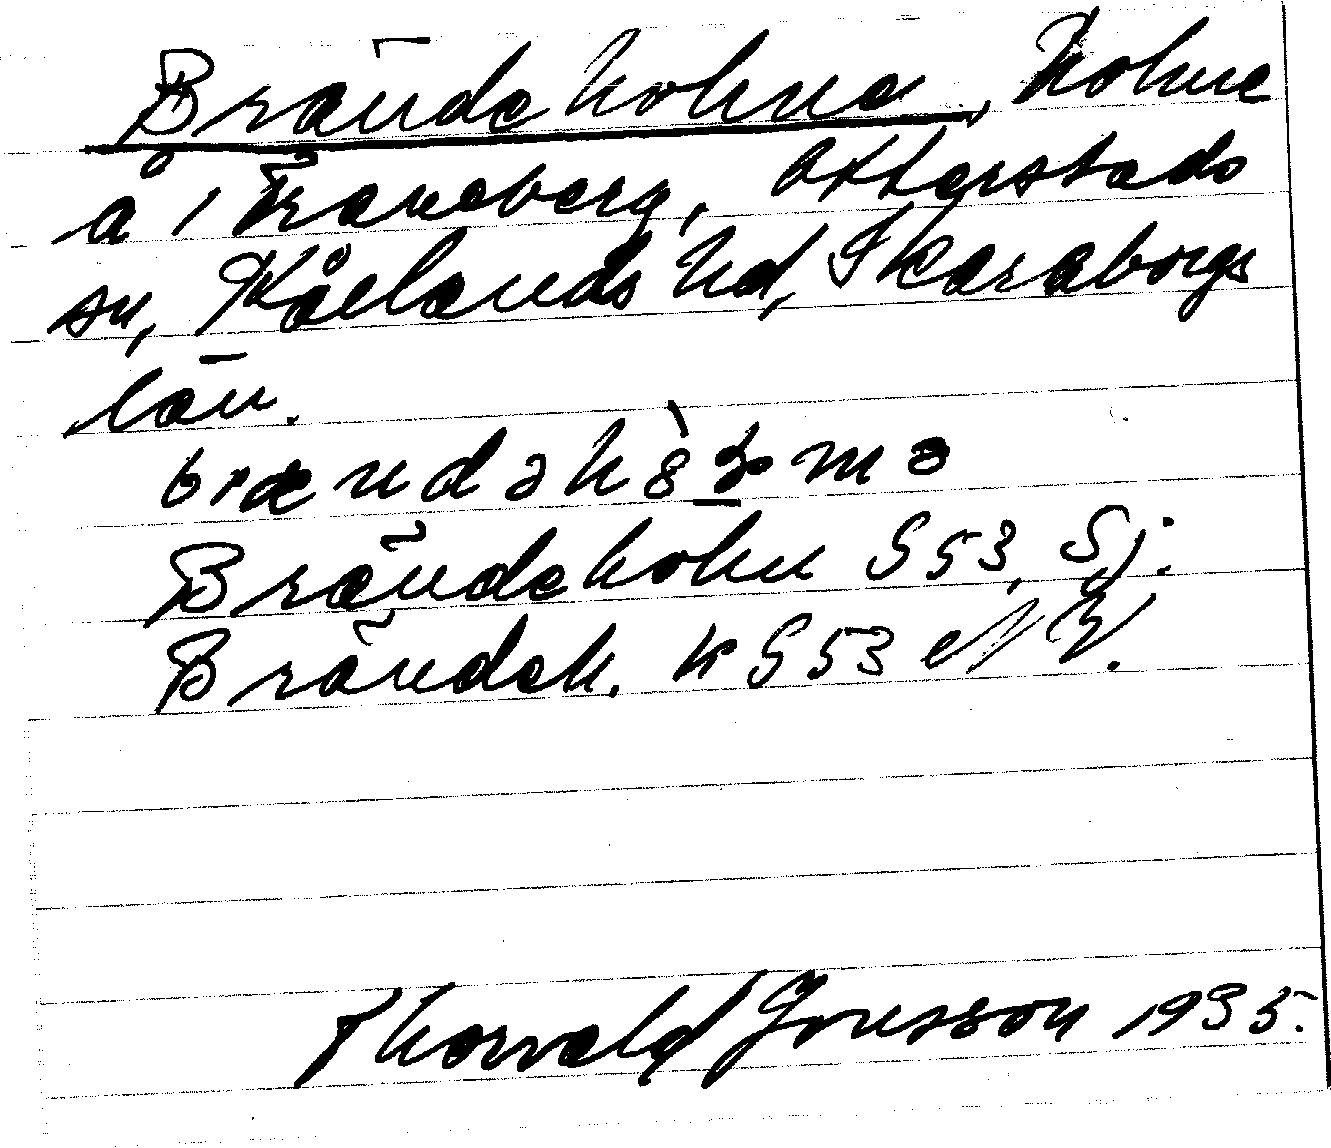 Brändeholma, holme
å i Traneberg, Otterstads
sn, Kållands hd, Skaraborgs
län.
Brändeholm G53, Sj.
Brändeh. K G53 NV.
Thorvald Jonsson 1935.